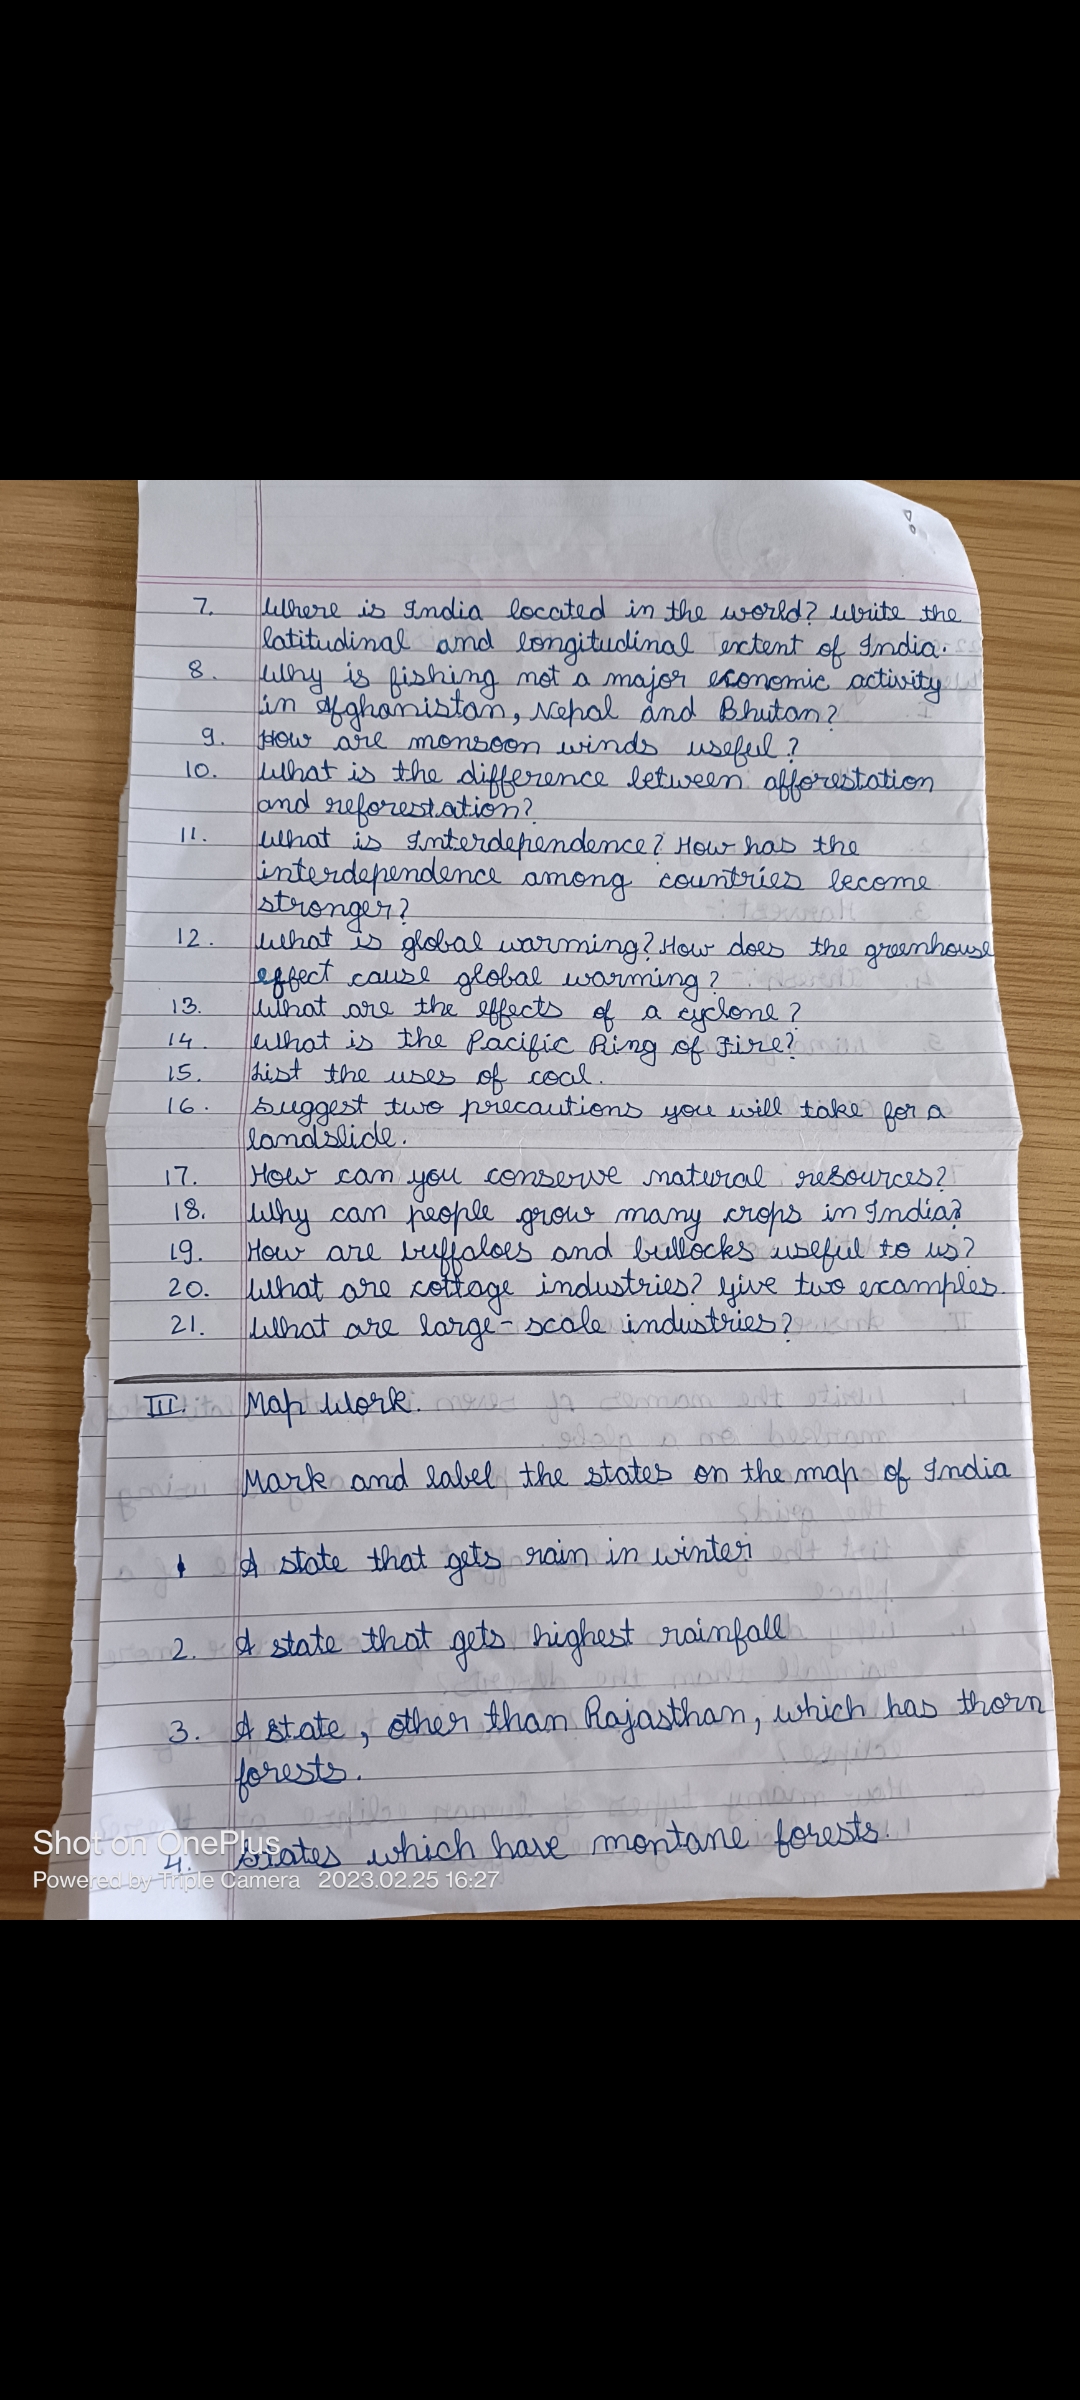 7. Where is India located in the world? Write the
latitudinal and longitudinal extent of India.
8. Why is fishing not a major economic activity
in Afghanistan, Nepal and Bhutan?
9. How are monsoon winds useful?
10. What is the difference between afforestation
and reforestation?
11. What is Interdependence? How has the
interdependence among countries become
stronger?
12. What is global warming? How does the greenhouse
effect cause global warming?
13. What are the effects of a cyclone?
14. What is the Pacific Ring of Fire?
15. List the uses of coal.
16. Suggest two precautions you will take for a
landslide.
17. How can you conserve natural resources?
18. Why can people grow many crops in India?
19. How are buffaloes and bullocks useful to us?
20. What are cottage industries? Give two examples.
21. What are large-scale industries?
III. Map Work.
Mark and label the states on the map of India
1 A state that gets rain in winter
2. A state that gets highest rainfall
3. A state, other than Rajasthan, which has thorn
forests.
4. States which have montane forests.
Shot on OnePlus
Powered by Triple Camera 2023.02.25 16:27